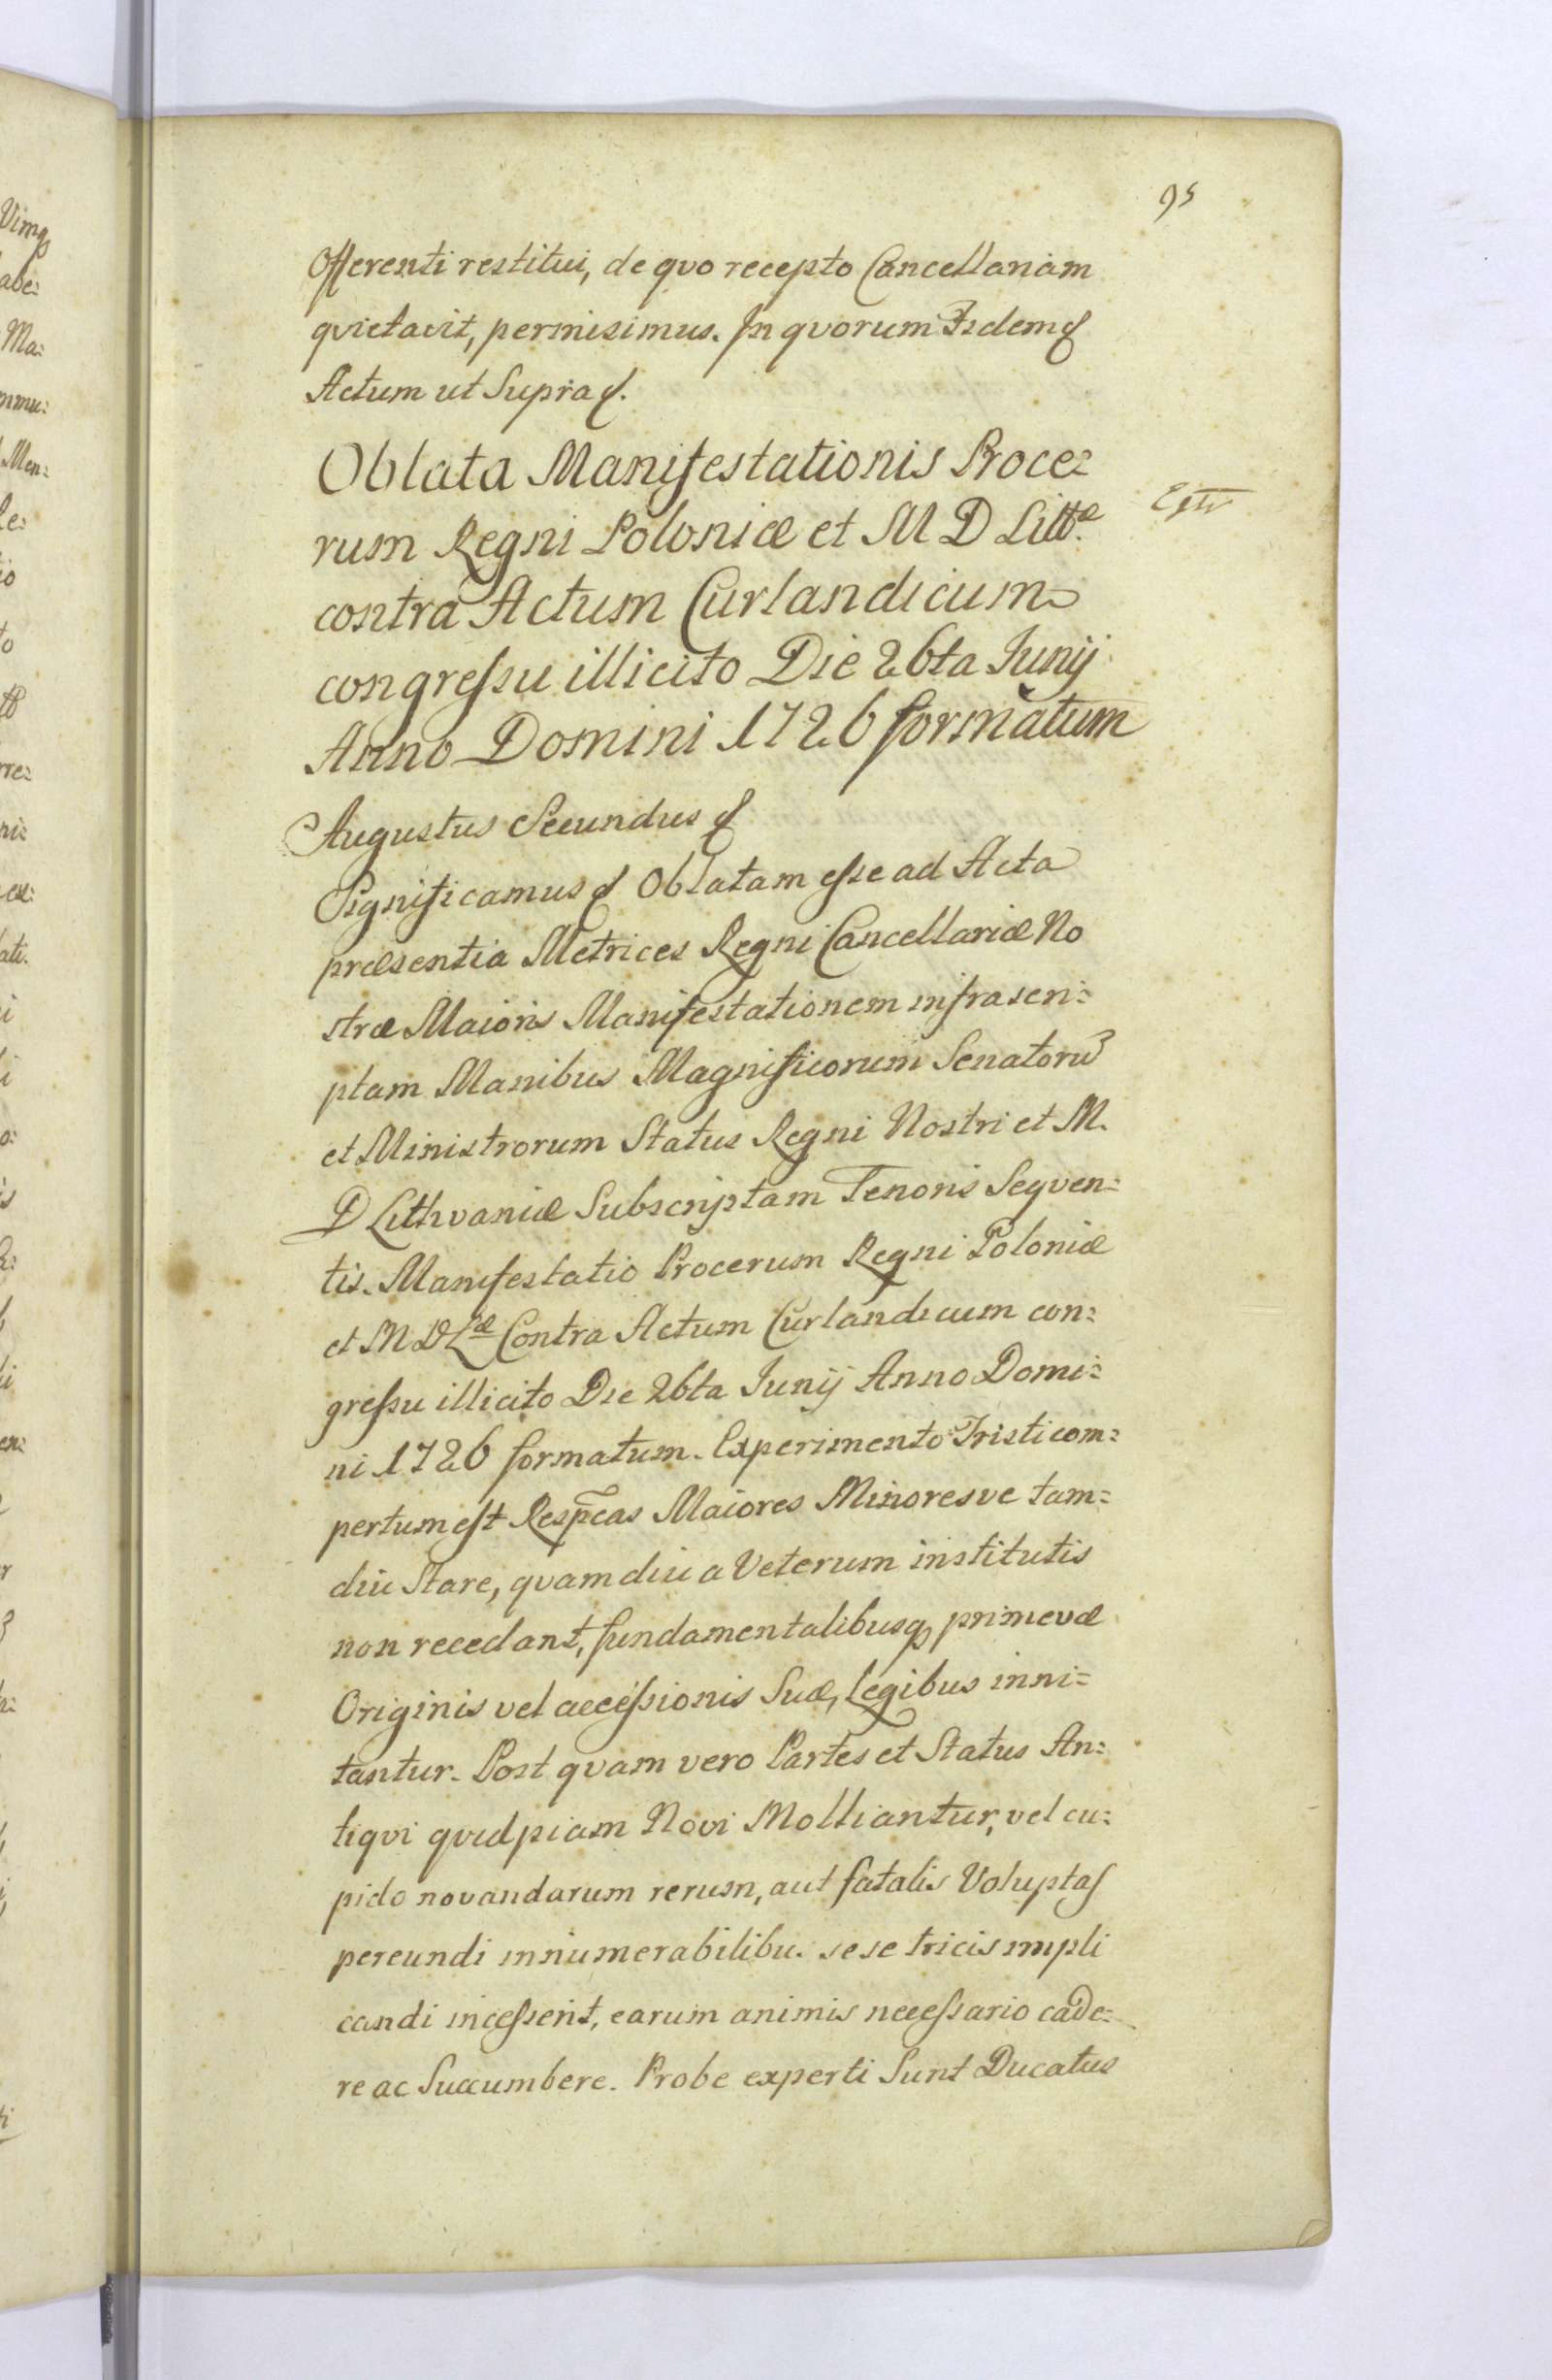 95
Offerenti restitui, de quo recepto Cancellariam
quietavit, permisimus. In quorum Fidem &
Actum ut Supra &.
Oblata Manifestationis Proce=
rum Regni Poloniæ et M D Litt.æ
contra Actum Curlandicum
congressu illicito Die 26ta Junij
Anno Domini 1726 formatum
Augustus Secundus &
Significamus & Oblatam esse ad Acta
præsentia Metrices Regni Cancellariæ No
stræ Maioris Manifestationem infrascri=
ptam Manibus Magnificorum Senatorũ
et Ministrorum Status Regni Nostri et M.
D Lithvaniæ Subscriptam Tenoris Seqven=
tis. Manifestatio Procerum Regni Poloniæ
et M D Læ Contra Actum Curlandicum con=
gressu illicito Die 26ta Junij Anno Domi=
ni 1726 formatum. Experimento Tristi com=
pertum est Respcas Maiores Minoresve tam=
diu Stare, quam diu a Veterum institutis
non recedant, fundamentalibusq primevæ
Originis vel accessionis Suæ, Legibus inni=
tantur. Post quam vero Partes et Status An=
tiqui quidpiam Novi Molliantur, vel cu=
pido novandarum rerum, aut fatalis Voluptas
pereundi innumerabilibu. sese tricis impli
candi incesserit, earum animis necessario cade=
re ac Succumbere. Probe experti Sunt Ducatus